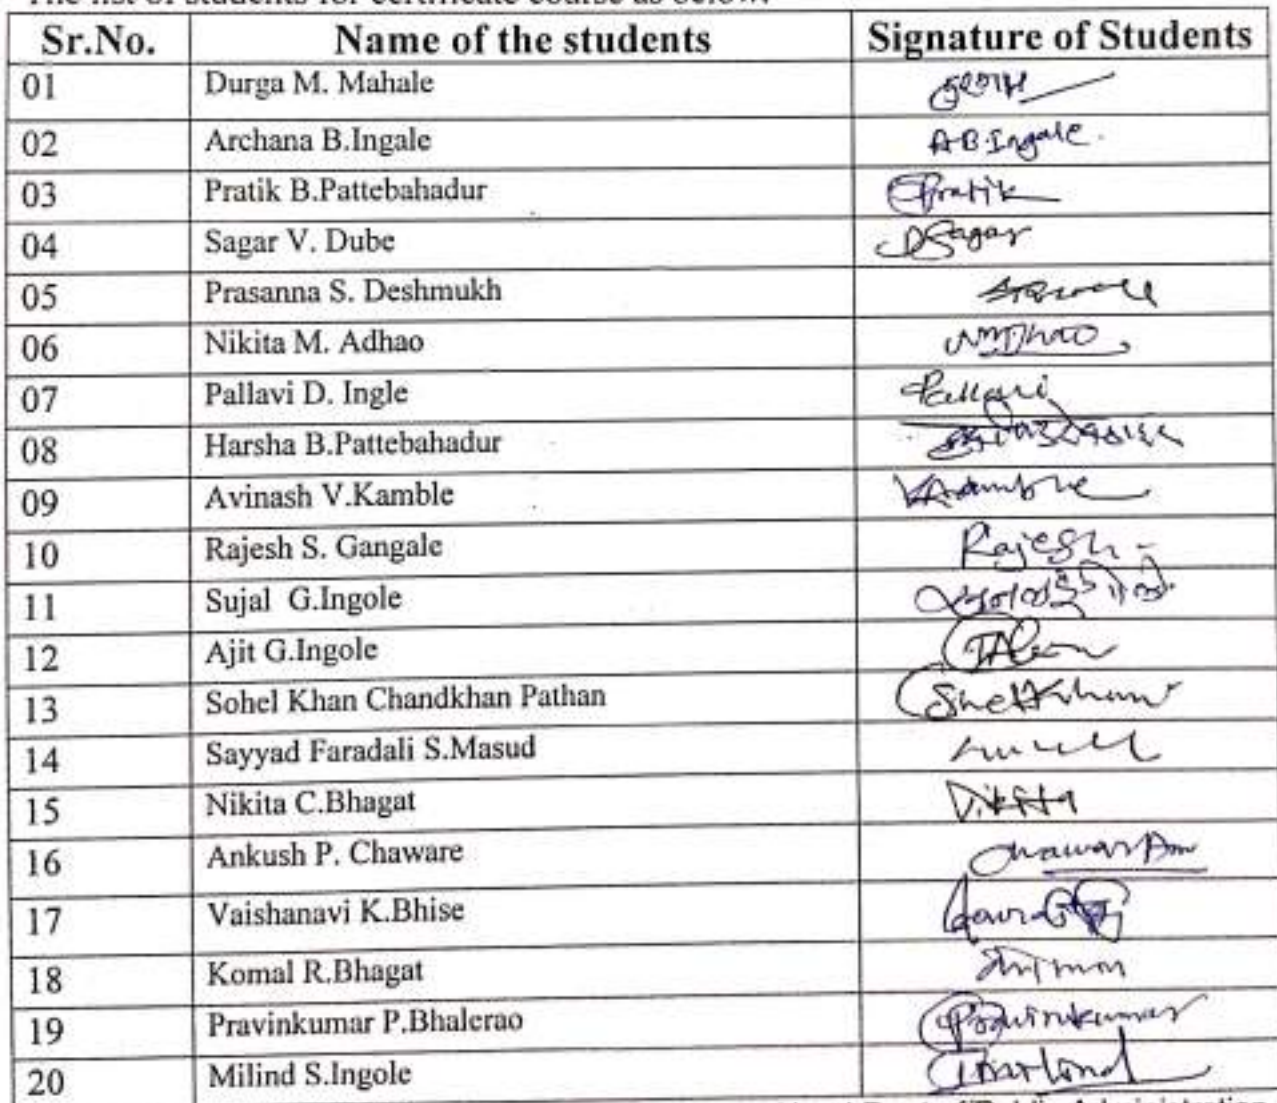 The list of students for certificate course as below:
Sr.No. Name of the students Signature of Students
01 Durga M. Mahale
02 Archana B.Ingale A.B.Ingale.
03 Pratik B.Pattebahadur Pratik
04 Sagar V. Dube DSagar
05 Prasanna S. Deshmukh
06 Nikita M. Adhao
07 Pallavi D. Ingle Pallavi
08 Harsha B.Pattebahadur
09 Avinash V.Kamble
10 Rajesh S. Gangale Rajesh
11 Sujal G.Ingole
12 Ajit G.Ingole
13 Sohel Khan Chandkhan Pathan
14 Sayyad Faradali S.Masud
15 Nikita C.Bhagat
16 Ankush P. Chaware
17 Vaishanavi K.Bhise
18 Komal R.Bhagat
19 Pravinkumar P.Bhalerao Pravinkumar
20 Milind S.Ingole
Administration